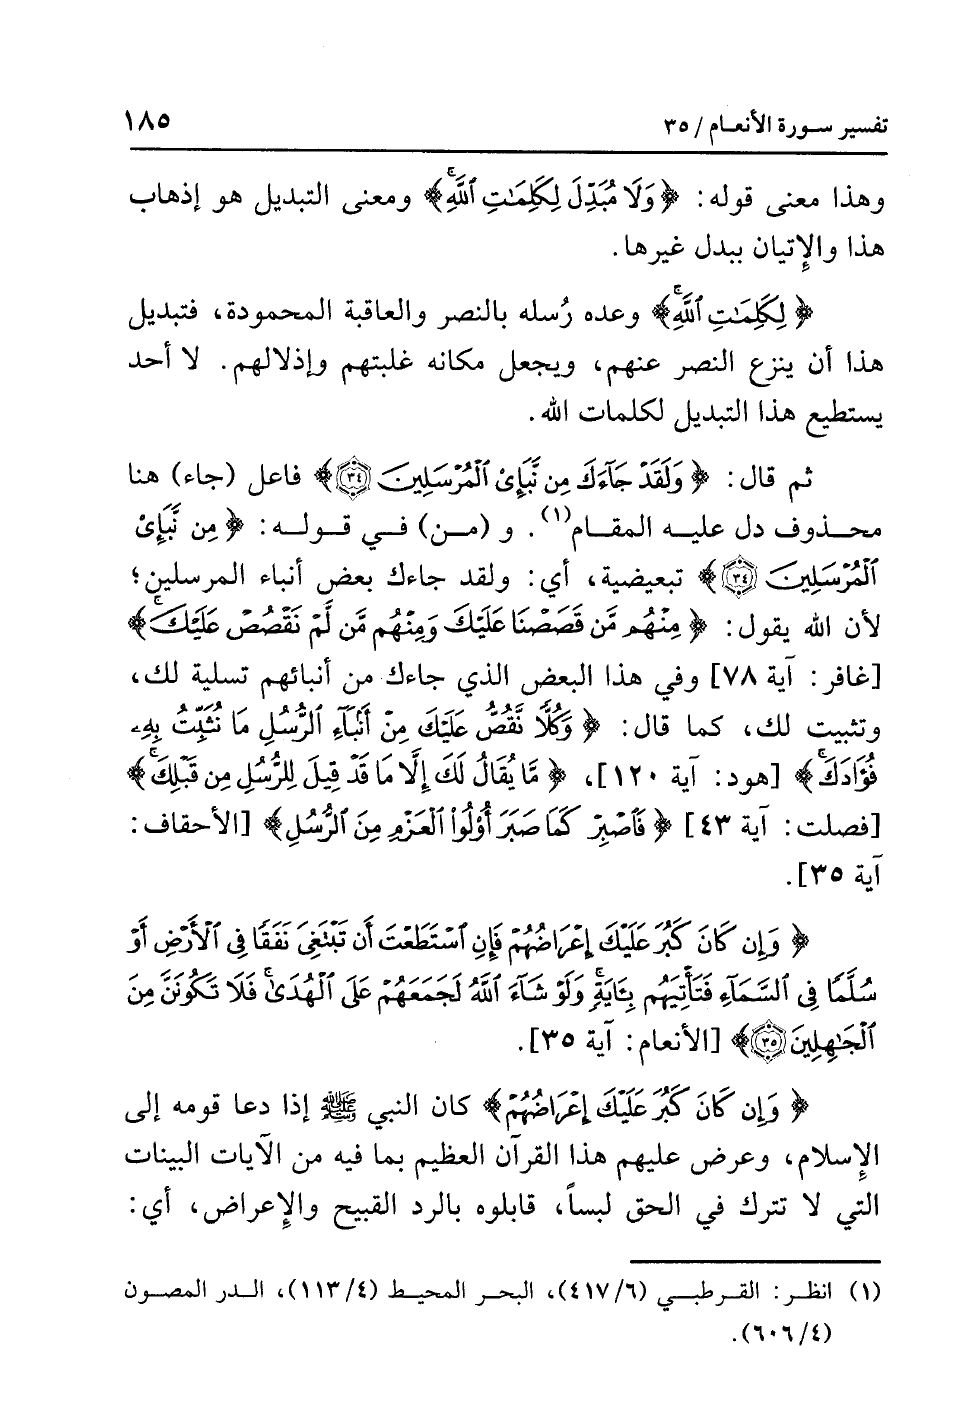 تفسير سورة الأنعام / ٣٥ ١٨٥
وهذا معنى قوله: ﴿وَلَا مُبَدِّلَ لِكَلِمَٰتِ ٱللَّهِۚ﴾ ومعنى التبديل هو إذهاب
هذا والإتيان ببدل غيرها.
﴿لِكَلِمَٰتِ ٱللَّهِۚ﴾ وعده رُسله بالنصر والعاقبة المحمودة، فتبديل
هذا أن ينزع النصر عنهم، ويجعل مكانه غلبتهم وإذلالهم. لا أحد
يستطيع هذا التبديل لكلمات الله.
ثم قال: ﴿وَلَقَدْ جَآءَكَ مِن نَّبَإِى۟ ٱلْمُرْسَلِينَ ٣٤﴾ فاعل (جاء) هنا
محذوف دل عليه المقام(١). و (من) في قوله: ﴿مِن نَّبَإِى۟
ٱلْمُرْسَلِينَ ٣٤﴾ تبعيضية، أي: ولقد جاءك بعض أنباء المرسلين؛
لأن الله يقول: ﴿مِنْهُم مَّن قَصَصْنَا عَلَيْكَ وَمِنْهُم مَّن لَّمْ نَقْصُصْ عَلَيْكَۗ﴾
[غافر: آية ٧٨] وفي هذا البعض الذي جاءك من أنبائهم تسلية لك،
وتثبيت لك، كما قال: ﴿وَكُلًّا نَّقُصُّ عَلَيْكَ مِنْ أَنۢبَآءِ ٱلرُّسُلِ مَا نُثَبِّتُ بِهِۦ
فُؤَادَكَۚ﴾ [هود: آية ١٢٠]، ﴿مَّا يُقَالُ لَكَ إِلَّا مَا قَدْ قِيلَ لِلرُّسُلِ مِن قَبْلِكَۚ﴾
[فصلت: آية ٤٣] ﴿فَٱصْبِرْ كَمَا صَبَرَ أُو۟لُوا۟ ٱلْعَزْمِ مِنَ ٱلرُّسُلِ﴾ [الأحقاف:
آية ٣٥].
﴿وَإِن كَانَ كَبُرَ عَلَيْكَ إِعْرَاضُهُمْ فَإِنِ ٱسْتَطَعْتَ أَن تَبْتَغِىَ نَفَقًا فِى ٱلْأَرْضِ أَوْ
سُلَّمًا فِى ٱلسَّمَآءِ فَتَأْتِيَهُم بِـَٔايَةٍۚ وَلَوْ شَآءَ ٱللَّهُ لَجَمَعَهُمْ عَلَى ٱلْهُدَىٰۚ فَلَا تَكُونَنَّ مِنَ
ٱلْجَٰهِلِينَ ٣٥﴾ [الأنعام: آية ٣٥].
﴿وَإِن كَانَ كَبُرَ عَلَيْكَ إِعْرَاضُهُمْ﴾ كان النبي ﷺ إذا دعا قومه إلى
الإسلام، وعرض عليهم هذا القرآن العظيم بما فيه من الآيات البينات
التي لا تترك في الحق لبساً، قابلوه بالرد القبيح والإعراض، أي:
(١) انظر: القرطبي (٤١٧/٦)، البحر المحيط (١١٣/٤)، الدر المصون
(٦٠٦/٤).